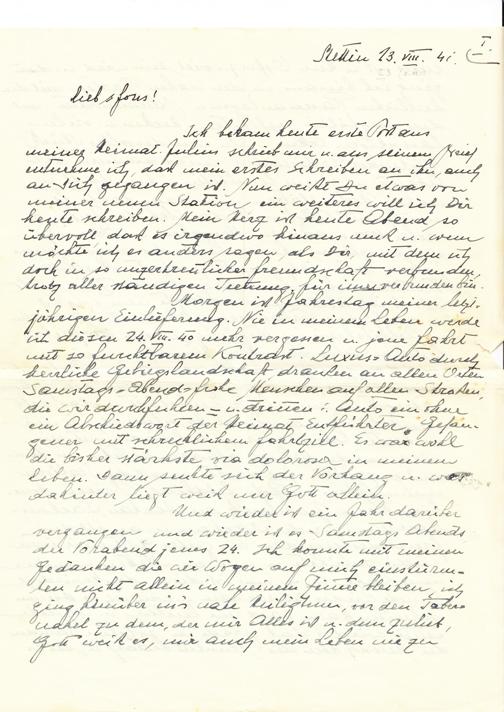 I
Stettin 23. VIII. 41.
Lieb's fons!
Ich bekam heute erste Post aus
meiner Heimat. Julius schrieb mir u. aus seinem Brief
entnehme ich, dass mein erstes Schreiben an ihn, auch
an dich gegangen ist. Nun weißt Du etwas von
meiner neuen Station ein weiteres will ich Dir
heute schreiben. Mein Herz ist heute Abend so
übervoll dass es irgendwo hinaus muss u. wem
möchte ich es anders sagen, als Dir, mit dem ich
doch in so unzertrennlicher Freundschaft verbunden,
trotz aller ständigen Trennung, für immer verbunden bin.
Morgen ist Jahrestag meiner letzt-
jährigen Einlieferung. Nie in meinem Leben werde
ich diesen 24. VIII. 40 mehr vergessen u. jene Fahrt
mit so furchtbarem Kontrast. Luxus-Auto durch
herrliche Gebirgslandschaft draußen an allen Orten
Samstags-Abend-frohe Menschen auf allen Straßen,
die wir durchfuhren – u. drinnen i. Auto ein ohne
ein Abschiedswort der Heimat Entführter, Gefan-
gener mit schrecklichem Fahrtziel. Es war wohl
die bisher stärkste via dolorosa in meinem
Leben. Dann senkte sich der Vorhang u. was
dahinter liegt weiß nur Gott allein.
Und wieder ist ein Jahr darüber
vergangen und wieder ist es Samstags Abends
der Vorabend jenes 24. Ich konnte mit meinen
Gedanken die wie Wogen auf mich einstürm-
ten nicht allein in meinem Zimmer bleiben, ich
ging hinüber ins nahe Heiligtum, vor den Taber-
nakel zu dem, der mir Alles ist u. dem zulieb,
Gott weiß es, mir auch mein Leben nie zu